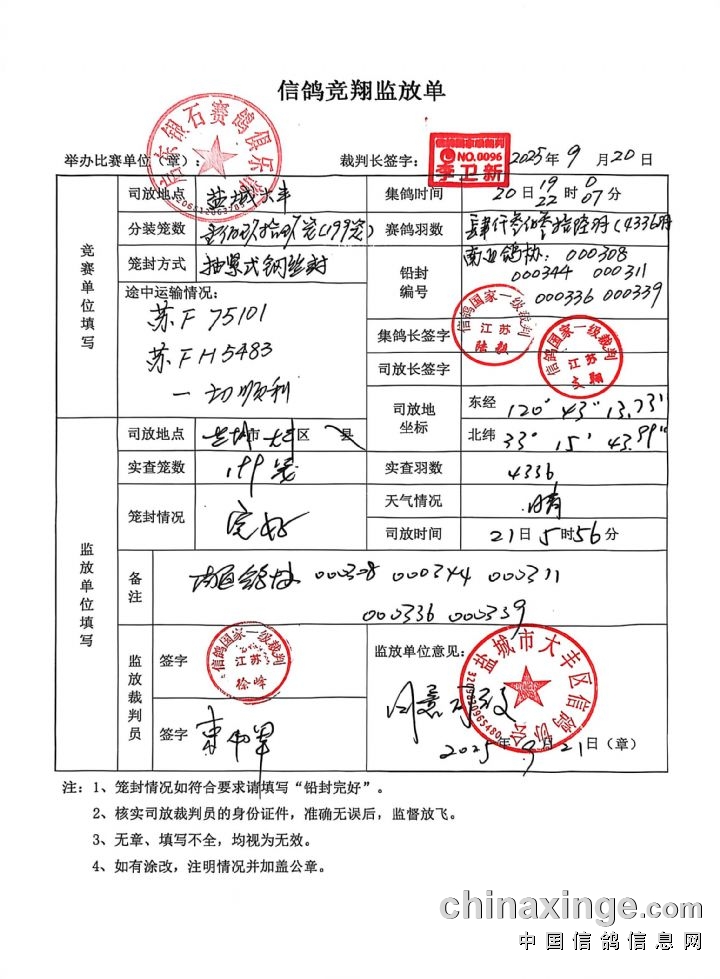 信鸽竞翔监放单
举办比赛单位（章）： 裁判长签字： 2025年9月20日
启东银石赛鸽俱乐部
信鸽国家级裁判
NO.0096
李卫新
竞赛单位填写
司放地点 盐城大丰 集鸽时间 20日 19 22 时 0 07 分
分装笼数 (199笼) 赛鸽羽数 肆仟叁佰叁拾陆羽(4336羽)
笼封方式 抽紧式钢丝封 铅封编号 南通鸽协: 000308
000344 000311
000336 000339
途中运输情况:
苏F 75101
苏F H5483
一切顺利
集鸽长签字 信鸽国家一级裁判 江苏
司放长签字 信鸽国家一级裁判 江苏
司放地坐标 东经 120° 43" 13.73"
北纬 33° 15' 43.99"
监放单位填写
司放地点 盐城市 大丰区 县
实查笼数 199笼 实查羽数 4336
笼封情况 完好 天气情况 晴
司放时间 21日5时56分
备注 南通鸽协 000308 000344 000311
000336 000339
监放裁判员
签字 信鸽国家一级裁判 江苏 徐峰
签字
监放单位意见:
同意司放
盐城市大丰区信鸽协会
2025年9月21日（章）
注：1、笼封情况如符合要求请填写“铅封完好”。
2、核实司放裁判员的身份证件，准确无误后，监督放飞。
3、无章、填写不全，均视为无效。
4、如有涂改，注明情况并加盖公章。
chinaxinge.com
中国信鸽信息网